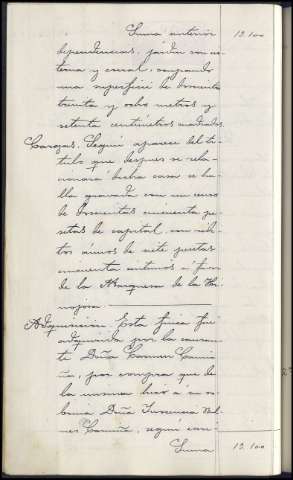 Suma anterior 13.100
dependencias, jardin con cis-
terna y corral, ocupando
una superficie de doscientos
treinta y ocho metros y
setenta centimetros cuadrados.
Cargas. Según aparece del ti-
tulo que despues se rela-
cionará dicha casa se ha-
lla gravada con un censo
de doscientas cincuenta pe-
setas de capital, con rédi-
tos ánuos de siete pesetas
cincuenta centimos á favor
de la Marquesa de la Hi-
nojosa.
Adquisicion. Esta finca fué
adquirida por la causan-
te Doña Carmen
por compra que de
la misma hizo á su so-
brina Doña
segun escri-
Suma 13.100